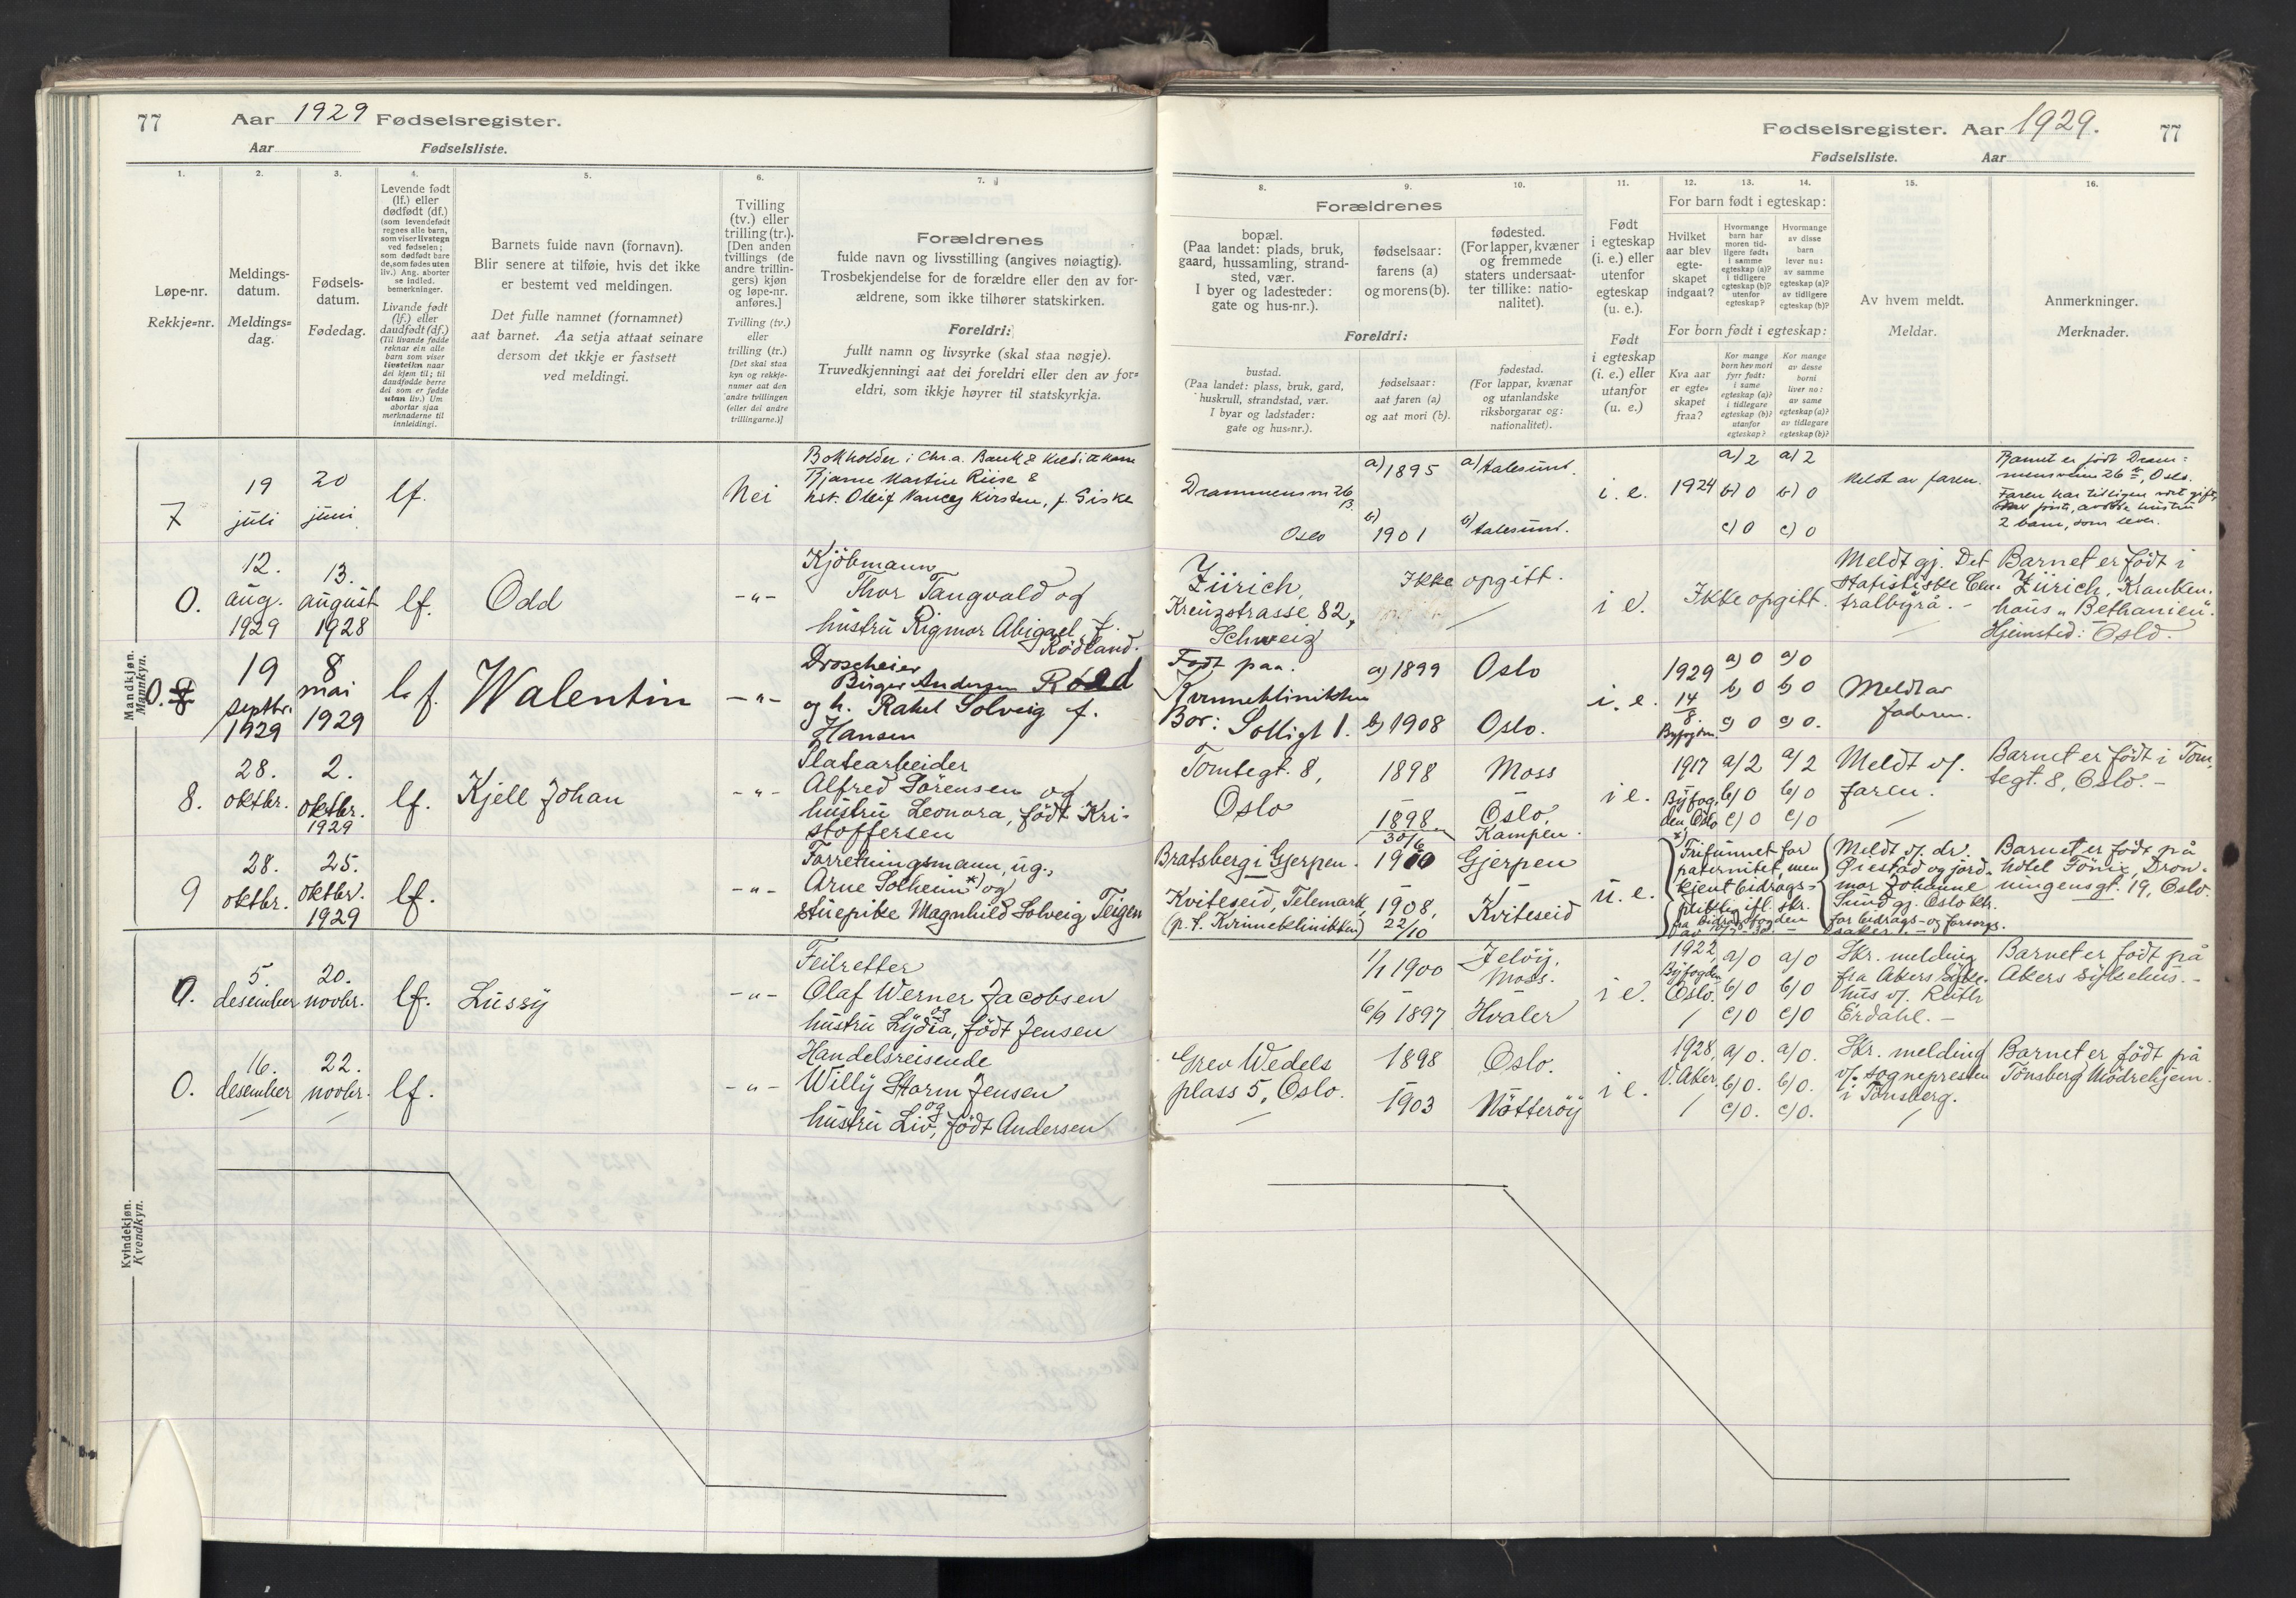 77 Aar 1929 Fødselsregister.
Aar Fødselsliste.
1. 2. 3. 4. 5. 6. 7.
Løpe-nr.
Rekkje=nr.
Meldings-
datum.
Meldings=
dag.
Fødsels-
datum.
Fødedag.
Levende født
(lf.) eller
dødfødt (df.)
(som levendefødt
regnes alle barn,
som viser livstegn
ved fødselen;
som dødfødt bare
de, som fødes uten
liv.) Ang. aborter
se indled.
bemerkninger.
Livande født
(lf.) eller
daudfødt (df.)
(Til livande fødde
reknar ein alle
barn som viser
livsteikn naar
dei kjem til; til
daudfødde berre
dei som er fødde
utan liv.) Um
abortar sjaa
merknaderne til
innleidingi.
Barnets fulde navn (fornavn).
Blir senere at tilføie, hvis det ikke
er bestemt ved meldingen.
Det fulle namnet (fornamnet)
aat barnet. Aa setja attaat seinare
dersom det ikkje er fastsett
ved meldingi.
Tvilling
(tv.) eller
trilling (tr.).
[Den anden
tvillings (de
andre trillin-
gers) kjøn
og løpe-nr.
anføres.]
Tvilling (tv.)
eller
trilling (tr.)
[Det skal staa
kyn og rekkje-
numer aat den
andre tvillingen
(eller dei andre
trillingarne.)]
Forældrenes
fulde navn og livsstilling (angives nøiagtig).
Trosbekjendelse for de forældre eller den av for-
ældrene, som ikke tilhører statskirken.
Foreldri:
fullt namn og livsyrke (skal staa nøgje).
Truvedkjenningi aat dei foreldri eller den av for=
eldri, som ikkje høyrer til statskyrkja.
Mandkjøn.
Mannkyn.
7
19
juli
20
juni
lf.
Nei
Bokholder i Chr.a. Bank & Kreditkasse
Bjarne Martin Riise &
hst. Oleif Nancy Kirsten, f. Giske
0.
12.
aug.
1929
13.
august
1928
lf.
Odd
-"-
Kjöbmann
Thor Tangvald og
hustru Rigmor Abigael, f.
Rödland.
0. 8
19
septbr.
1929
8
mai
1929
l. f.
Walentin
-"-
Droscheier
Birger Andersen Röed
og h. Rakel Solveig f.
Hansen
8.
28.
oktbr.
2.
oktbr.
1929
lf.
Kjell Johan
-"-
Platearbeider
Alfred Sörensen og
hustru Leonora, född Kri-
stoffersen
9
28.
oktbr.
25.
oktbr.
1929
lf.
-"-
Forretningsmann, ug.,
Arne Solheim *) og
stuepike Magnhild Solveig Teigen
Kvindekjøn.
Kvendkyn.
0.
5.
desember
20.
novbr.
lf.
Lussy
-"-
Feilretter
Olaf Werner Jacobsen
og
hustru Lydia, född Jensen
0.
16.
desember
22.
novbr.
lf.
-"-
Handelsreisende
Willy Storm Jensen
og
hustru Liv, född Andersen
Fødselsregister. Aar 1929. 77
Fødselsliste. Aar
8. 9. 10. 11. 12. 13. 14. 15. 16.
Forældrenes
bopæl.
(Paa landet: plads, bruk,
gaard, hussamling, strand-
sted, vær.
I byer og ladesteder:
gate og hus-nr.).
fødselsaar:
farens (a)
og morens (b).
fødested.
(For lapper, kvæner
og fremmede
staters undersaat-
ter tillike: natio-
nalitet).
Foreldri:
bustad.
(Paa landet: plass, bruk, gard,
huskrull, strandstad, vær.
I byar og ladstader:
gate og hus=nr.).
fødselsaar:
aat faren (a)
og aat mori (b).
fødestad.
(For lappar, kvænar
og utanlandske
riksborgarar og:
nationalitet).
Født
i egteskap
(i. e.) eller
utenfor
egteskap
(u. e.).
Født
i egteskap
(i. e.) eller
utanfor
(u. e.)
For barn født i egteskap:
Hvilket
aar blev
egte-
skapet
indgaat?
Hvormange
barn har
moren tid-
ligere født:
i samme
egteskap (a)?
i tidligere
egteskap (b)?
utenfor
egteskap?
Hvormange
av disse
barn
lever nu:
av samme
egteskap (a)?
av tidligere
egteskap (b)?
For born født i egteskap:
Kva aar
er egte=
skapet
fraa?
Kor mange
born hev mori
fyrr født:
i same
egteskap (a)?
i tidlegare
egteskap (b)?
utanfor
egteskap?
Kor mange
av desse
borni
liver no:
av same
egteskap (a)?
av tidlegare
egteskap (b)?
Av hvem meldt.
Meldar.
Anmerkninger.
Merknader.
Drammensvn 26
B.
Oslo
a) 1895
b) 1901
a) Aalesund.
b) Aalesund.
i. e.
1924
a) 2
b) 0
c) 0
a) 2
b) 0
c) 0
Meldt av faren.
Barnet er födt Dram=
mensveien 26 B, Oslo.
Faren har tidligere vært gift,
2 barn, som lever.
Zürich,
Kreuzstrasse 82,
Schweiz
Ikke opgitt.
i e.
Ikke opgitt.
Meldt gj. Det
statistiske Cen-
tralbyrå. -
Barnet er födt i
Zürich, Kranken-
haus „Bethanien".
Hjemsted: Oslo.
Födt paa
Kvinneklinikken
Bor: Solligt 1.
a) 1899
b) 1908
Oslo
Oslo.
i. e.
1929
14
8.
Byfogden
a) 0
b) 0
c) 0
a) 0
b) 0
c) 0.
Meldt av
faderen.
Tomtegt. 8,
Oslo
1898
1898
30/6
Moss
Oslo,
Kampen.
i e.
1917
Byfog-
den Oslo
a) 2
b) 0
c) 0
a) 2
b) 0
c) 0
Meldt v/.
faren.
Barnet er födt i Tom-
tegt. 8, Oslo. -
Bratsberg i Gjerpen.
Kviteseid, Telemark,
(p. t. Kvinneklinikken)
1900
1908,
22/10
Gjerpen
Kviteseid
u. e.
*)
Frifunnet for
paternitet, men
kjent bidrags=
pliktig ifl. skr.
fra Bidragsfogden
Meldt v/. dr.
Öiestad og jord-
mor Johanne
Sund gj. Oslo ktr.
for bidrags- og forsorgs-
saker. -
Barnet er födt på
hotel Fönix, Dron-
ningensgt. 19, Oslo.
1/1 1900
6/9 1897
Jelöy,
Moss.
Hvaler
i e.
1922,
Byfogden
Oslo.
a) 0
b) 0
c) 0
a) 0
b) 0
c) 0
Skr. melding
fra Akers Syke-
hus v/. Ruth
Erdahl. -
Barnet er födt på
Akers sykehus. -
Grev Wedels
plass 5, Oslo.
1898
1903
Oslo.
Nötteröy
i e.
1928,
V. Aker.
a) 0.
b) 0.
c) 0.
a) 0.
b) 0.
c) 0.
Skr. melding
v/. sognepresten
i Tönsberg.
Barnet er födt på
Tönsberg Mödrehjem.